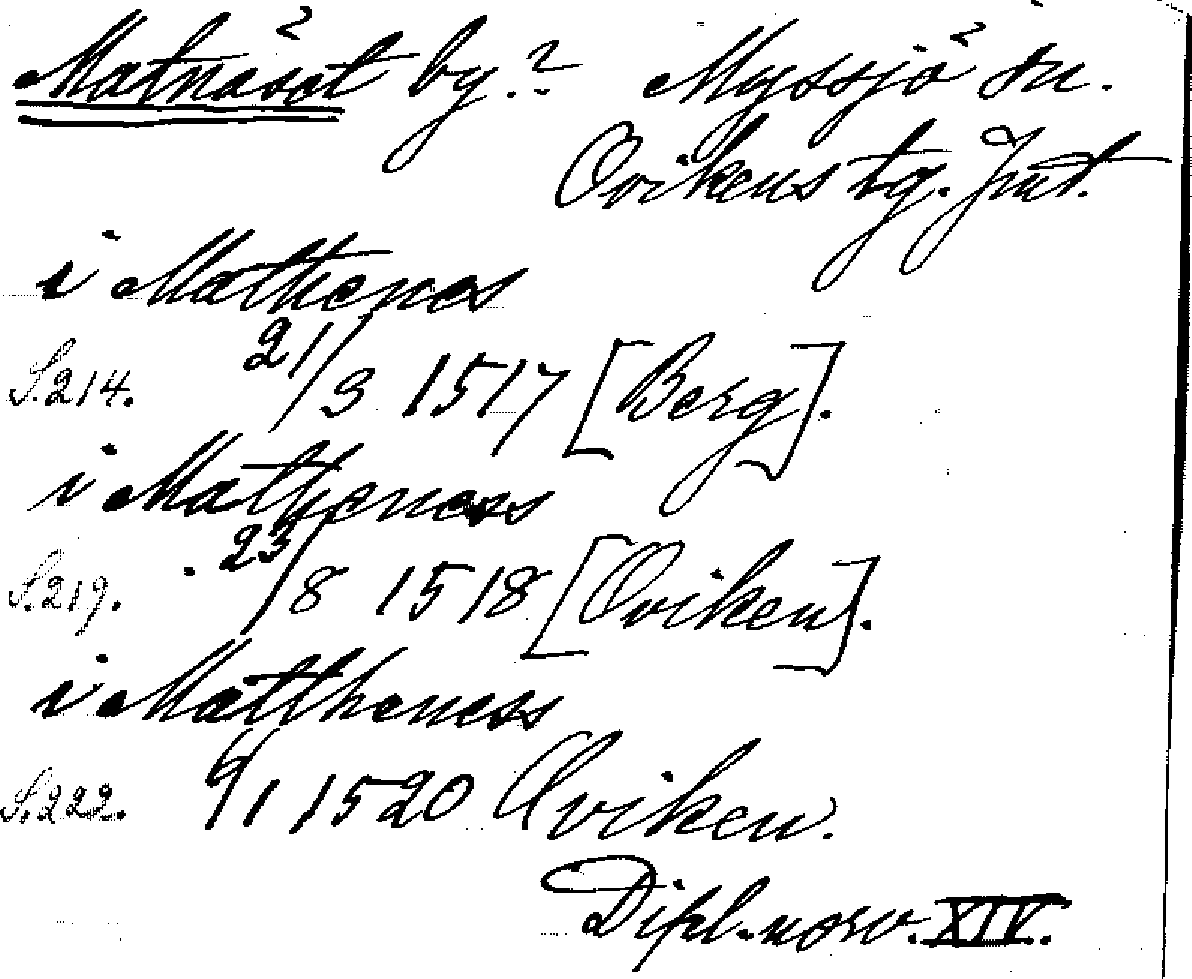 Matnäset by? Myssjö sn.
Ovikens tg. Jmt.
i Mathenes
S.214. 21/3 1517 [Berg].
i Matheness
S.219. 23/8 1518 [Oviken].
i Mattheness
S.222. 6/1 1520 Oviken.
Dipl. norv. XIV.